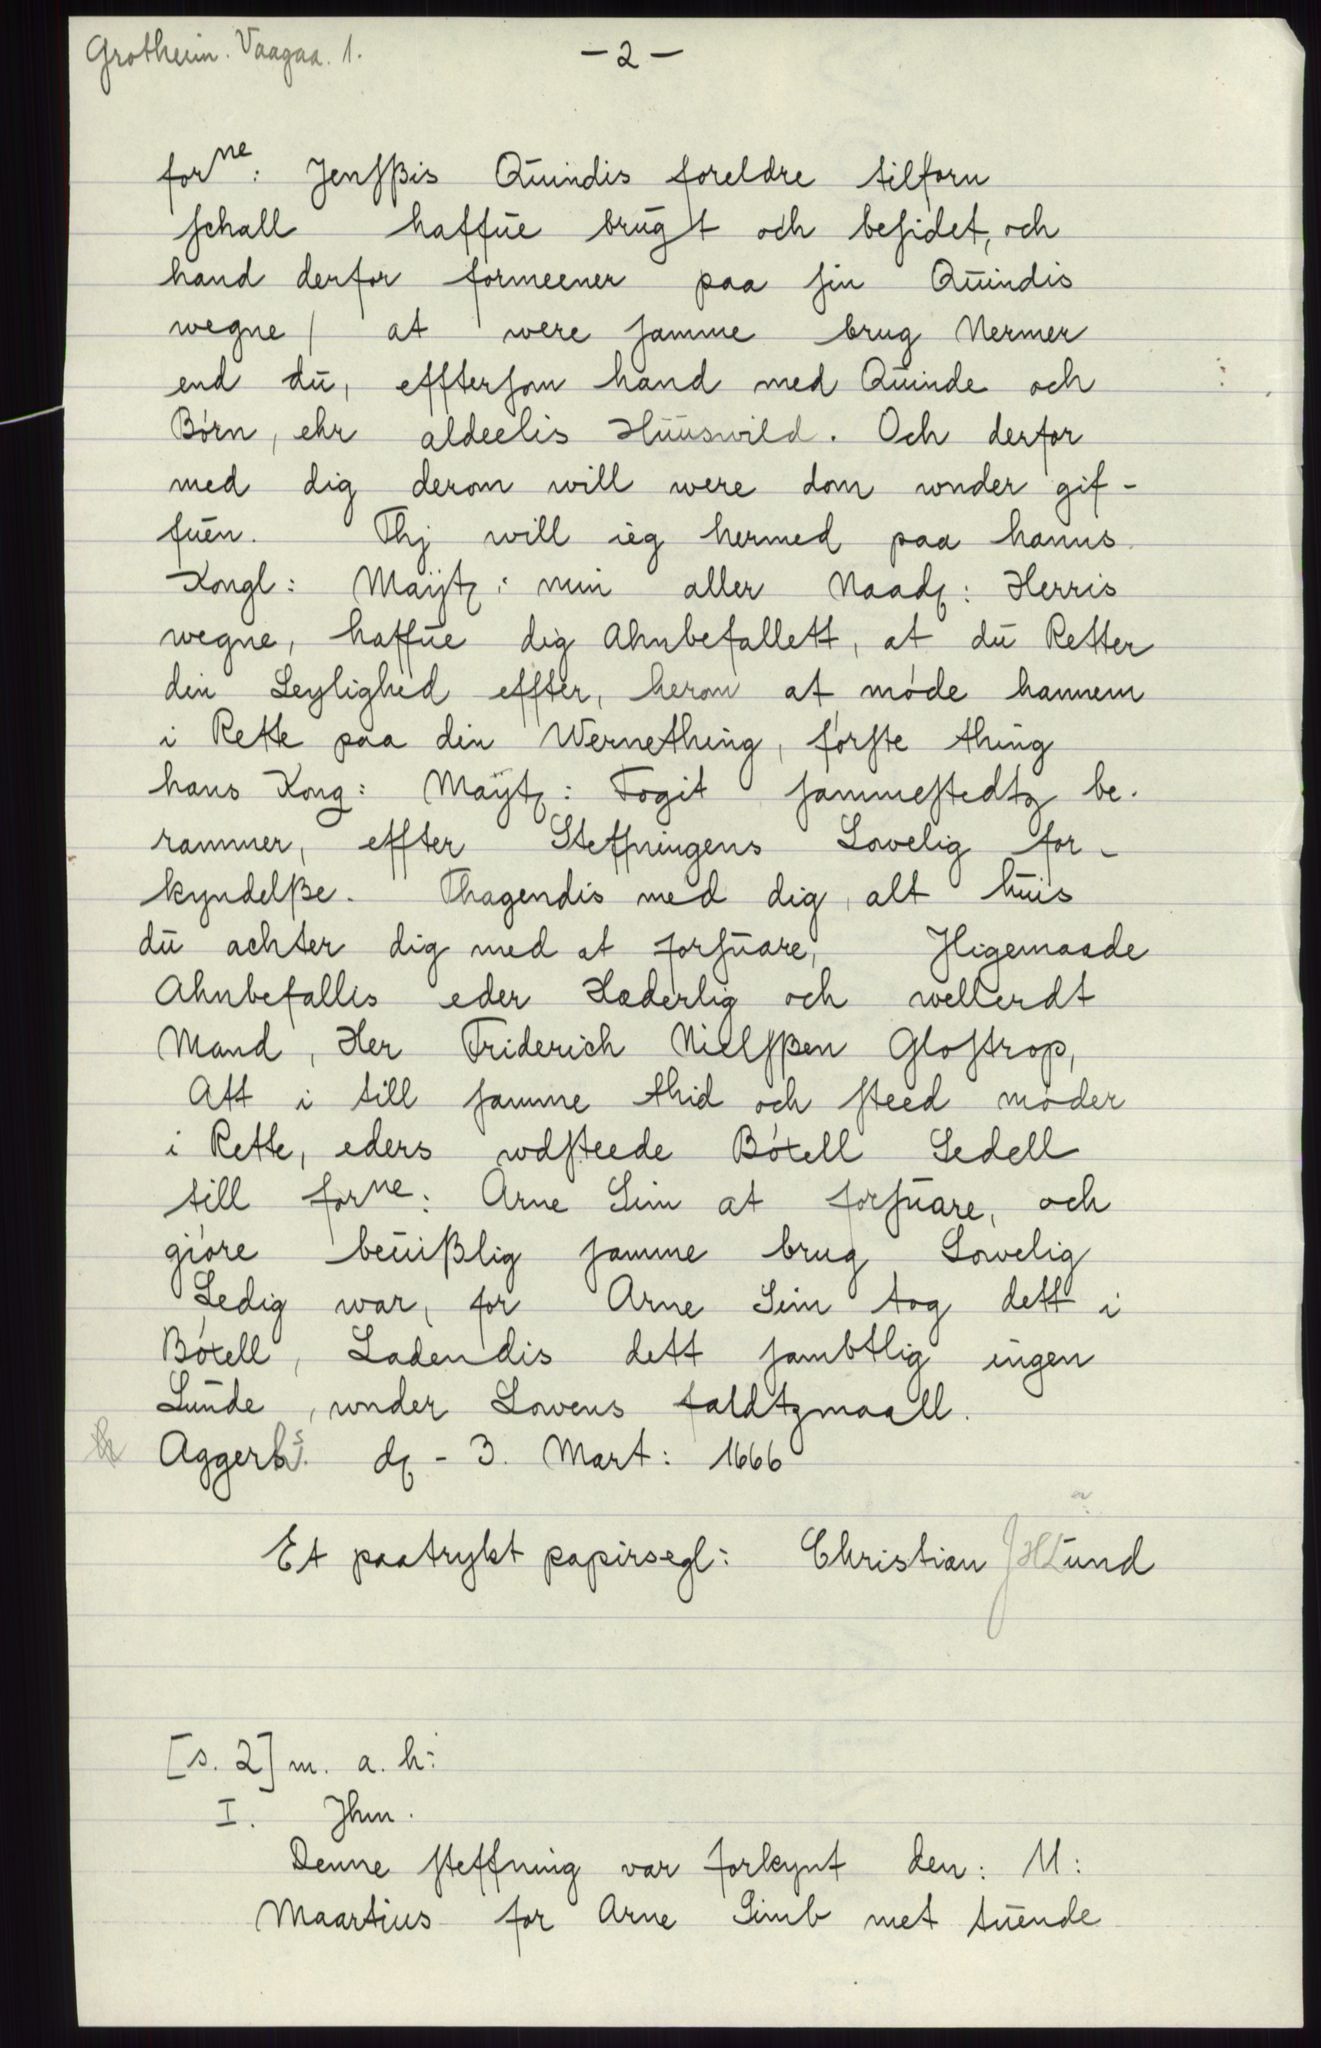 Grotheim. Vaagaa. 1.
- 2 -
forne: Jenſßis Quindis foreldre tilforn
ſchall haffūe brūgt och beſidet, och
hand derfor formeener paa ſin Qūindis
wegne / at were ſamme brug Nermer
end dū, efftersom hand med Qūinde och
Börn, ehr aldeelis Hūūswild. Och derfor
med dig derom will were dom wnder gif-
fūen. Thj will ieg hermed paa hanns
Kongl: Maÿtz: min aller Naadz: Herris
wegne, haffūe dig Ahnbefallett, at dū Retter
din Leylighed effter, herom at móde hannem
i Rette paa din Wernething, förſte thing
hans Kong: Maÿtz: Fogit ſammeſtedtz be-
rammer, effter Steffningens Lovelig for-
kyndelße. Thagendis med dig, alt hūis
dū achter dig med at forſūare, Jligemaade
Ahnbefallis eder Hæderlig och wellerdt
Mand, Her Friderich Nielſßen Gloſtrop,
Att i till ſamme thid och ſteed móder
i Rette, eders wdſteede Böxell Sedell
till forne: Arne Sim at forſūare, och
gióre beūißlig ſamme brug Lowelig
Ledig war, for Arne Sim tog dett i
Böxell, Ladendis dett ſambtlig ingen
Lūnde, wnder Lowens faldtzmaall.
Aggerhs. dz - 3. Mart: 1666
Et paatrykt papirsegl: Christian JHLūnd
[s. 2] m. a. h:
I. Jhm.
Denne ſteffning var forkynt den: 11:
Maartius for Arne Simb met tūende